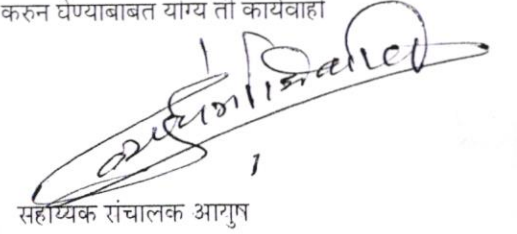 करुन घेण्याबाबत योग्य ती कार्यवाही
सहाय्यक संचालक आयुष